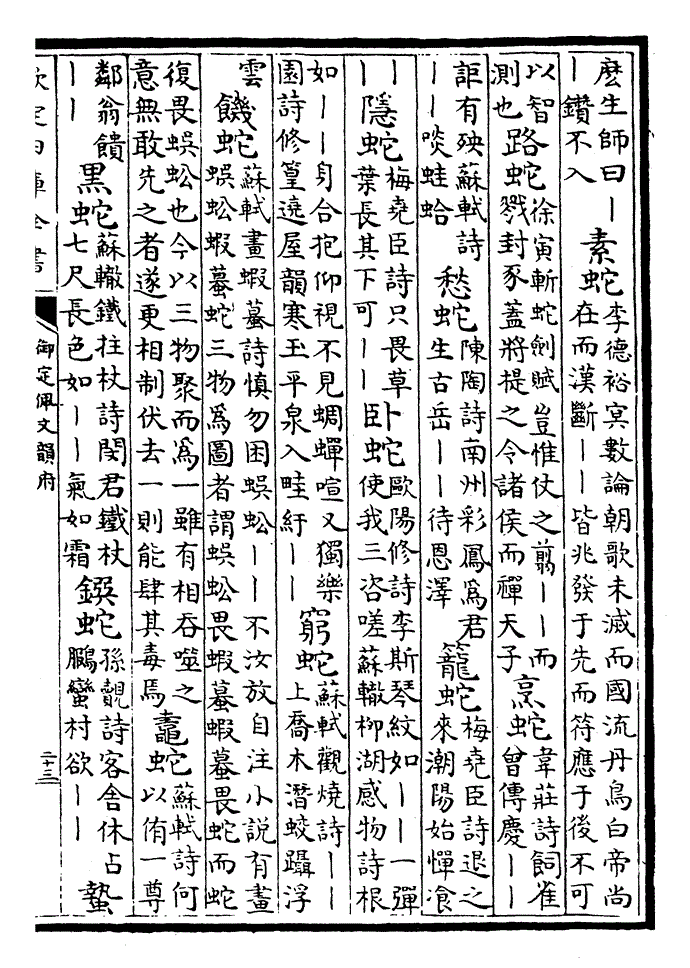 麽生師曰一
一鑽不入
素蛇
李德裕冥數論朝歌未滅而國流丹烏白帝尚
在而漢斷一一皆兆發于先而符應于後不可
以智
測也
路蛇
徐寅斬蛇劍賦豈惟仗之翦一一而
戮封豕蓋將提之令諸侯而禪天子
烹蛇
韋莊詩飼雀
曾傳慶一一
詎有殃蘇軾詩
一一啖蛙蛤
愁蛇
陳陶詩南州彩鳳為君
生古岳一一待恩澤
籠蛇
梅堯臣詩退之
來潮陽始憚飡
一一
隱蛇
梅堯臣詩只畏草
葉長其下可一一
卧蛇
歐陽修詩李斯琴紋如一一一彈
使我三咨嗟蘇轍柳湖感物詩根
如一一身合抱仰視不見蜩蟬喧又獨樂
園詩修篁遶屋韻寒玉平泉入畦紆一一
窮蛇
蘇軾觀燒詩一一
上喬木潛蛟躡浮
雲
饑蛇
蘇軾畫蝦蟇詩慎勿困蜈蚣一一不汝放自注小説有畫
蜈蚣蝦蟇蛇三物為圖者謂蜈蚣畏蝦蟇蝦蟇畏蛇而蛇
復畏蜈蚣也今以三物聚而為一雖有相吞噬之
意無敢先之者遂更相制伏去一則能肆其毒焉
鼃蛇
蘇軾詩何
以侑一尊
鄰翁饋
一一
黑蛇
蘇轍鐵拄杖詩閔君鐵杖
七尺長色如一一氣如霜
蛇
孫覿詩客舍休占
鵬蠻村欲一一
蟄
欽定四庫全書
御定佩文韻府
二十三